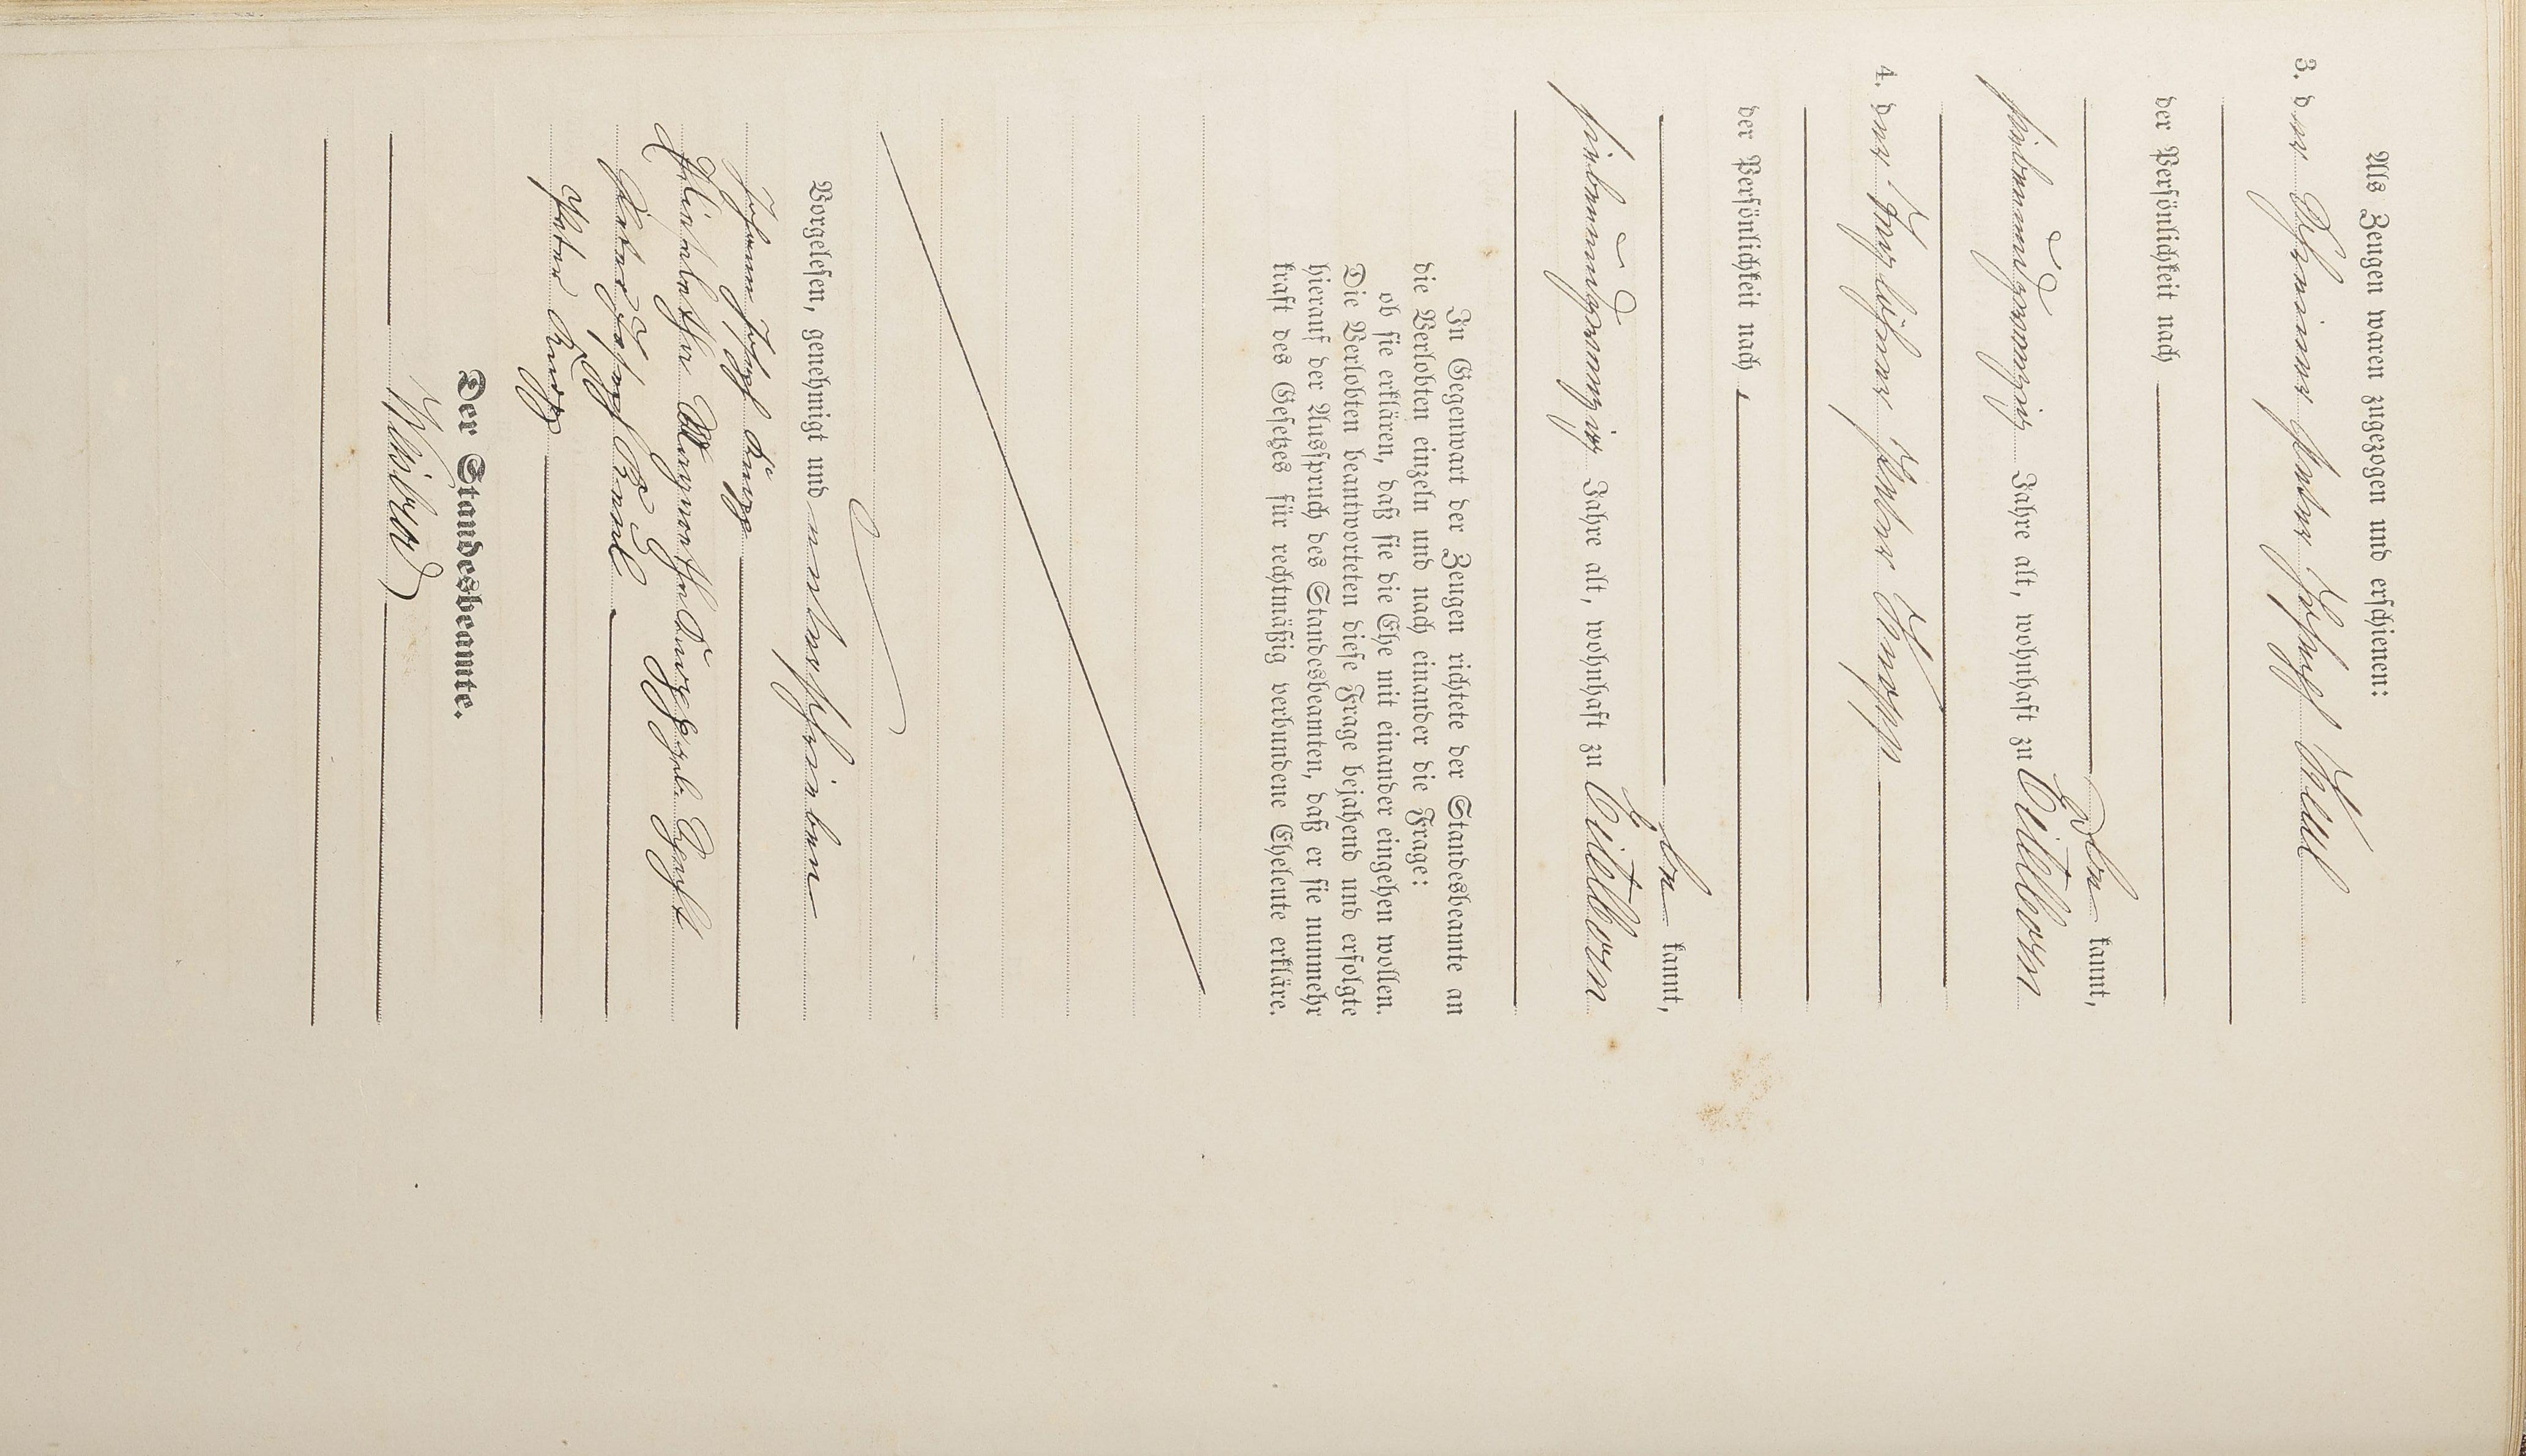 Als Zeugen waren zugezogen und erschienen:
3. der Schreiner Peter Joseph Keul
der Persönlichkeit nach
kannt,
siebenundzwanzig Jahre alt, wohnhaft zu
4. der Peter Knopp
der Persönlichkeit nach
kannt,
siebenundzwanzig Jahre alt, wohnhaft zu
In Gegenwart der Zeugen richtete der Standesbeamte an
die Verlobten einzeln und nach einander die Frage:
ob sie erklären, daß sie die Ehe mit einander eingehen wollen.
Die Verlobten beantworteten diese Frage bejahend und erfolgte
hierauf der Ausspruch des Standesbeamten, daß er sie nunmehr
kraft des Gesetzes für rechtmäßig verbundene Eheleute erkläre.
Vorgelesen, genehmigt und unterschrieben
Johann Joseph
Elisabetha Margaretha
Peter Josef Keul
Peter
Der Standesbeamte.